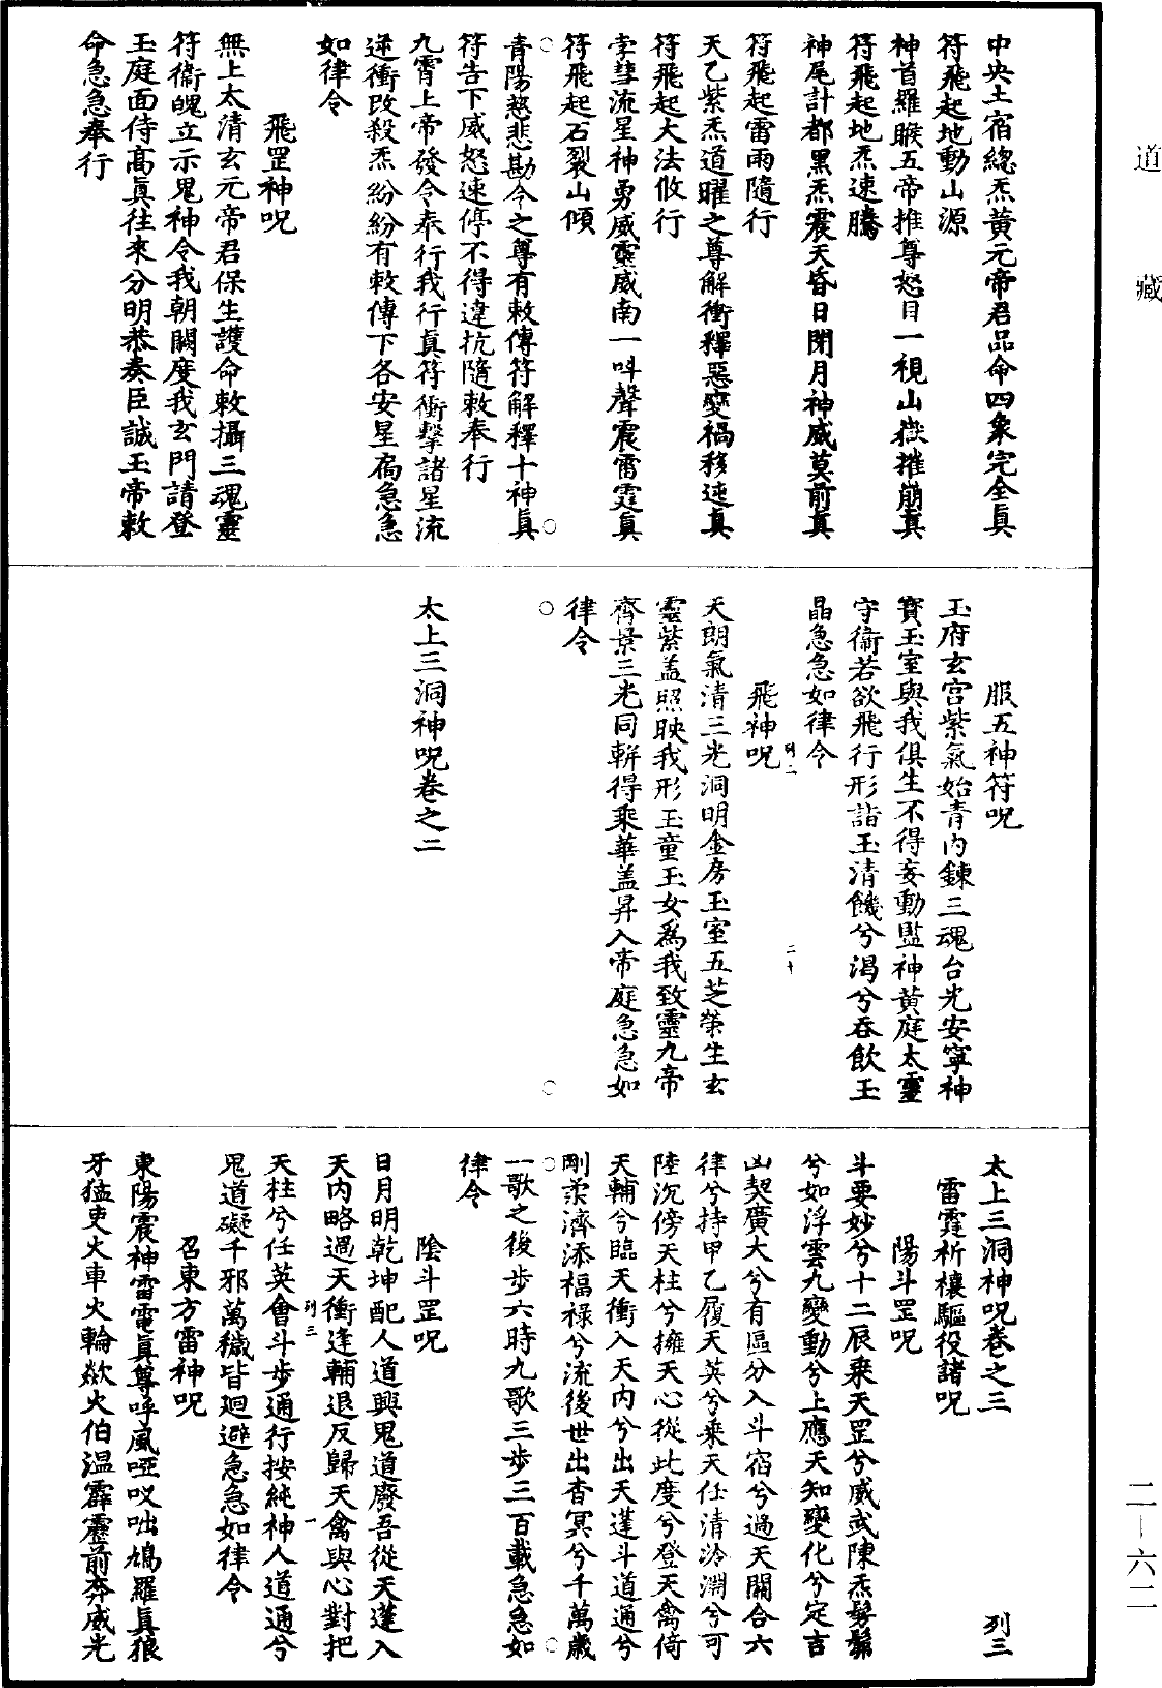 道藏
中央土宿總炁黃元帝君品命四象完全真
符飛起地動山源
神首羅睺五帝推尊怒目一視山嶽摧崩真
符飛起地炁速騰
神尾計都黑炁震天昏日閉月神威莫前真
符飛起雷雨隨行
天乙紫炁道曜之尊解衝釋惡變禍移迍真
符飛起大法攸行
孛彗流星神勇威靈威南一呌聲震雷霆真
符飛起石裂山傾
青陽慈悲勘令之尊有敕傳符解釋十神真
符告下威怒速停不得違抗隨敕奉行
九霄上帝發令奉行我行真符衝擊諸星流
逆衝改殺炁紛紛有敕傳下各安星扄急急
如律令
飛罡神呪
無上太清玄元帝君保生護命敕攝三魂靈
符衞魄立示鬼神令我朝闕度我玄門請登
玉庭面侍高真往來分明恭奏臣誠玉帝敕
命急急奉行
服五神符呪
玉府玄宫紫氣始青内鍊三魂台光安寜神
寳玉室與我俱生不得妄動監神黃庭太靈
守衞若欲飛行形詣玉清饑兮渴兮吞飲玉
晶急急如律令
飛神呪
列二
二十
天朗氣清三光洞明金房玉室五芝榮生玄
靈紫盖照映我形玉童玉女爲我致靈九帝
齊景三光同軿得乘華盖昇入帝庭急急如
律令
太上三洞神呪卷之二
太上三洞神呪卷之三
列三
雷霆祈禳驅役諸呪
陽斗罡呪
斗要妙兮十二辰乘天罡兮威武陳炁髣髴
兮如浮雲九變動兮上應天知變化兮定吉
凶契廣大兮有區分入斗宿兮過天關合六
律兮持甲乙履天英兮乘天任清泠淵兮可
陸沉傍天柱兮擁天心從此度兮登天禽倚
天輔兮臨天衝入天内兮出天蓬斗道通兮
剛柔濟添福禄兮流後世出杳冥兮千萬歲
一歌之後步六時九歌三步三百載急急如
律令
陰斗罡呪
日月明乾坤配人道興鬼道廢吾從天蓬入
天内略過天衝逢輔退反歸天禽與心對把
列三
一
天柱兮任英會斗步通行按純神人道通兮
鬼道礙千邪萬穢皆廻避急急如律令
召東方雷神呪
東陽震神雷電真尊呼風啞㕮咄鳩羅真狼
牙猛吏火車火輪歘火伯温霹靂前奔威光
二—六二